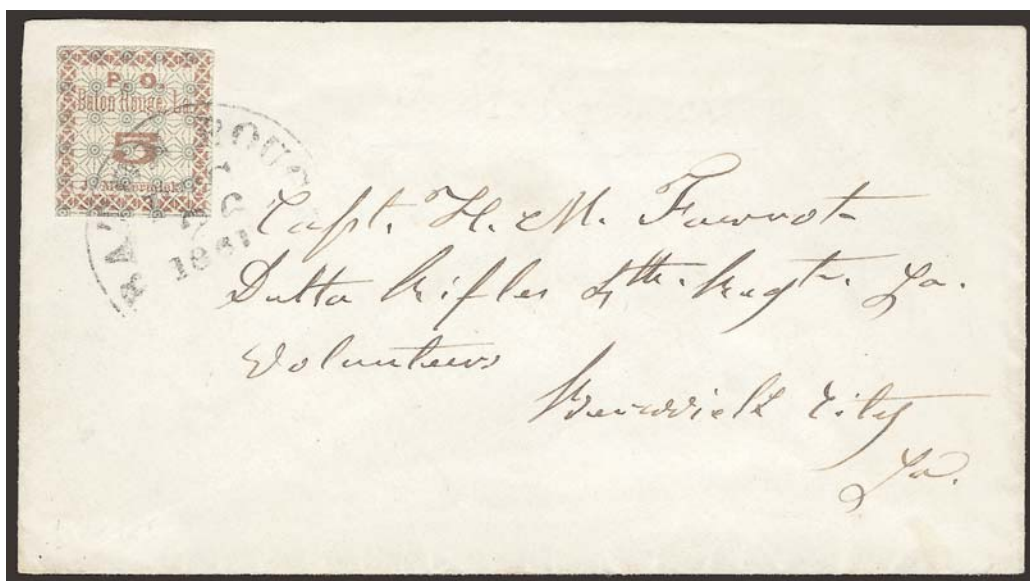 P. O.
Baton Rouge, La.
5
J. McCormick.
BATON ROUGE
1861
Capt. H. M. Favrot
Delta Rifles 4th. Regt. La.
Volunteers
Berwick City
La.